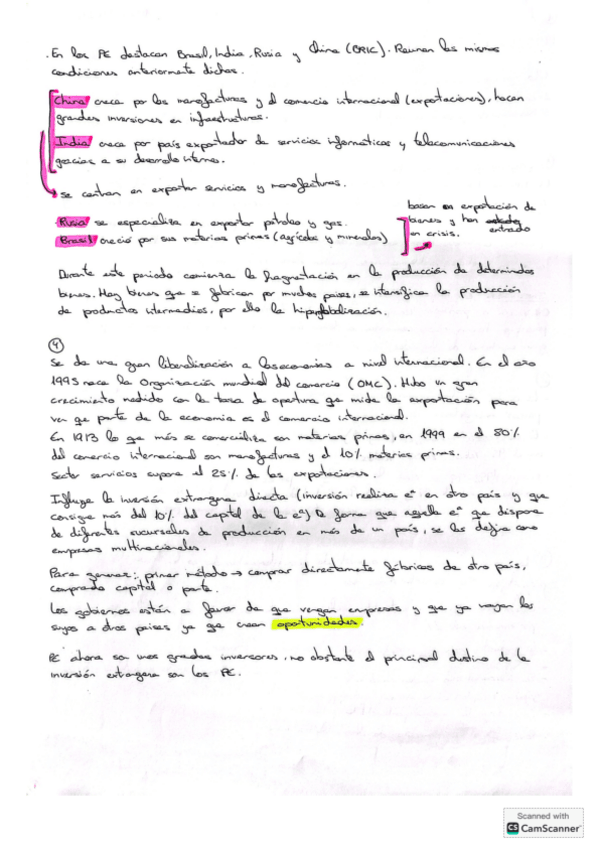 . En los PE destacan Brasil, India, Rusia y China (BRIC). Reunen las mismas
condiciones anteriormente dichas.
China crece por las manofacturas y el comercio internacional (exportaciones), hacen
grandes inversiones en infraestructuras.
India crece por país exportador de servicios informáticos y telecomunicaciones
gracias a su desarrollo interno.
se centran en exportar servicios y manofacturas.
Rusia se especializa en exportar petroleo y gas.
Brasil creció por sus materias primas (agrícolas y minerales)
basan en exportación de
bienes y han
entrado
en crisis.
Durante este periodo comienza la fragmentación en la producción de determinados
bienes. Hay bienes que se fabrican por muchos paises, se intensifica la producción
de productos intermedios, por ello la hiperglobalización.
4
Se da una gran liberalización a las economías a nivel internacional. En el año
1995 nace la Organización mundial del comercio (OMC). Hubo un gran
crecimiento medido con la tasa de apertura que mide la exportación para
ver qe parte de la economía es el comercio internacional.
En 1913 lo qe más se comercializa son materias primas, en 1999 en el 80%
del comercio internacional son manofacturas y el 10% materias primas.
Sector servicios supone el 25% de las exportaciones.
Influye la inversión extrangera directa (inversión realiza eª en otro país y que
consigue más del 10% del capital de la eª) D forma que aquella eª que dispone
de diferentes sucursales de producción en más de un país, se les define como
empresas multinacionales.
Para generar: primer método → comprar directamente fábricas de otro país,
comprando capital o parte.
Los gobiernos están a favor de que vengan empresas y que ya vayan las
suyas a otros paises ya que crean oportunidades.
PE ahora son unos grandes inversores, no obstante el principal destino de la
inversión extrangera son los PE.
Scanned with
CS CamScanner